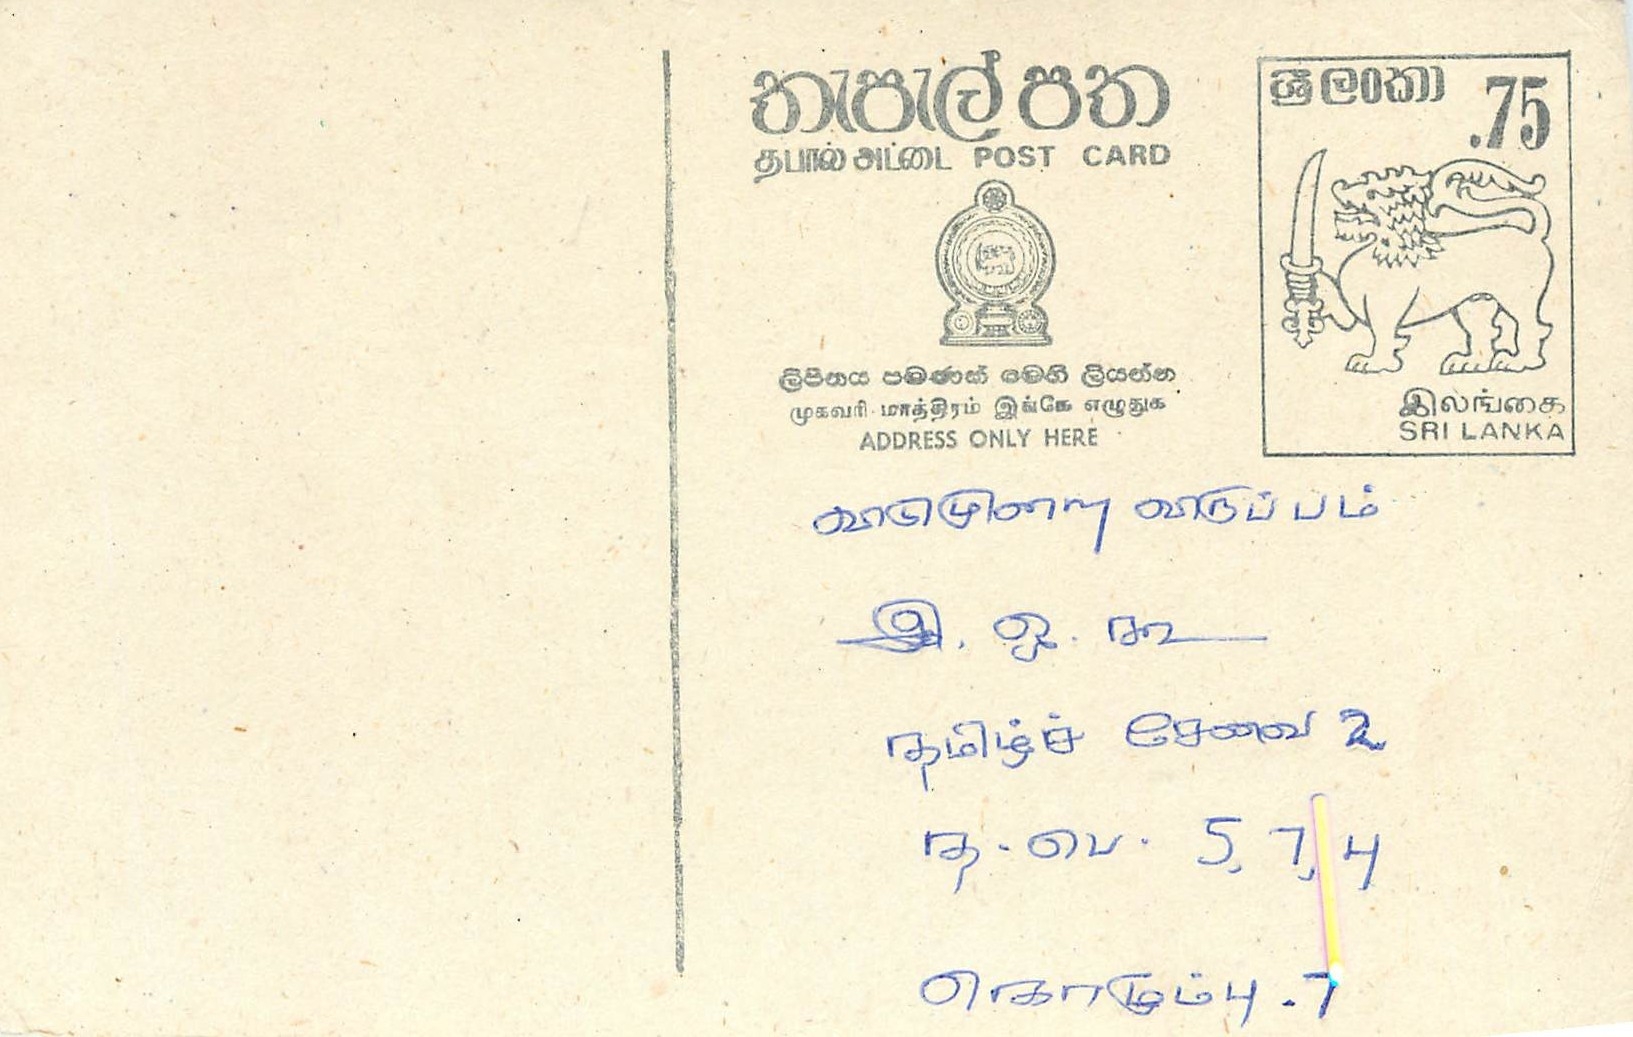 තැපැල් පත
தபால் அட்டை POST CARD
ශ්‍රී ලංකා .75
ලිපිනය පමණක් මෙහි ලියන්න
முகவரி மாத்திரம் இங்கே எழுதுக
ADDRESS ONLY HERE
இலங்கை
SRI LANKA
விருப்பம்
இ. ஒ. கூ
தமிழ்ச் சேவை 2
த. பெ. 5, 7, 4
கொழும்பு . 7